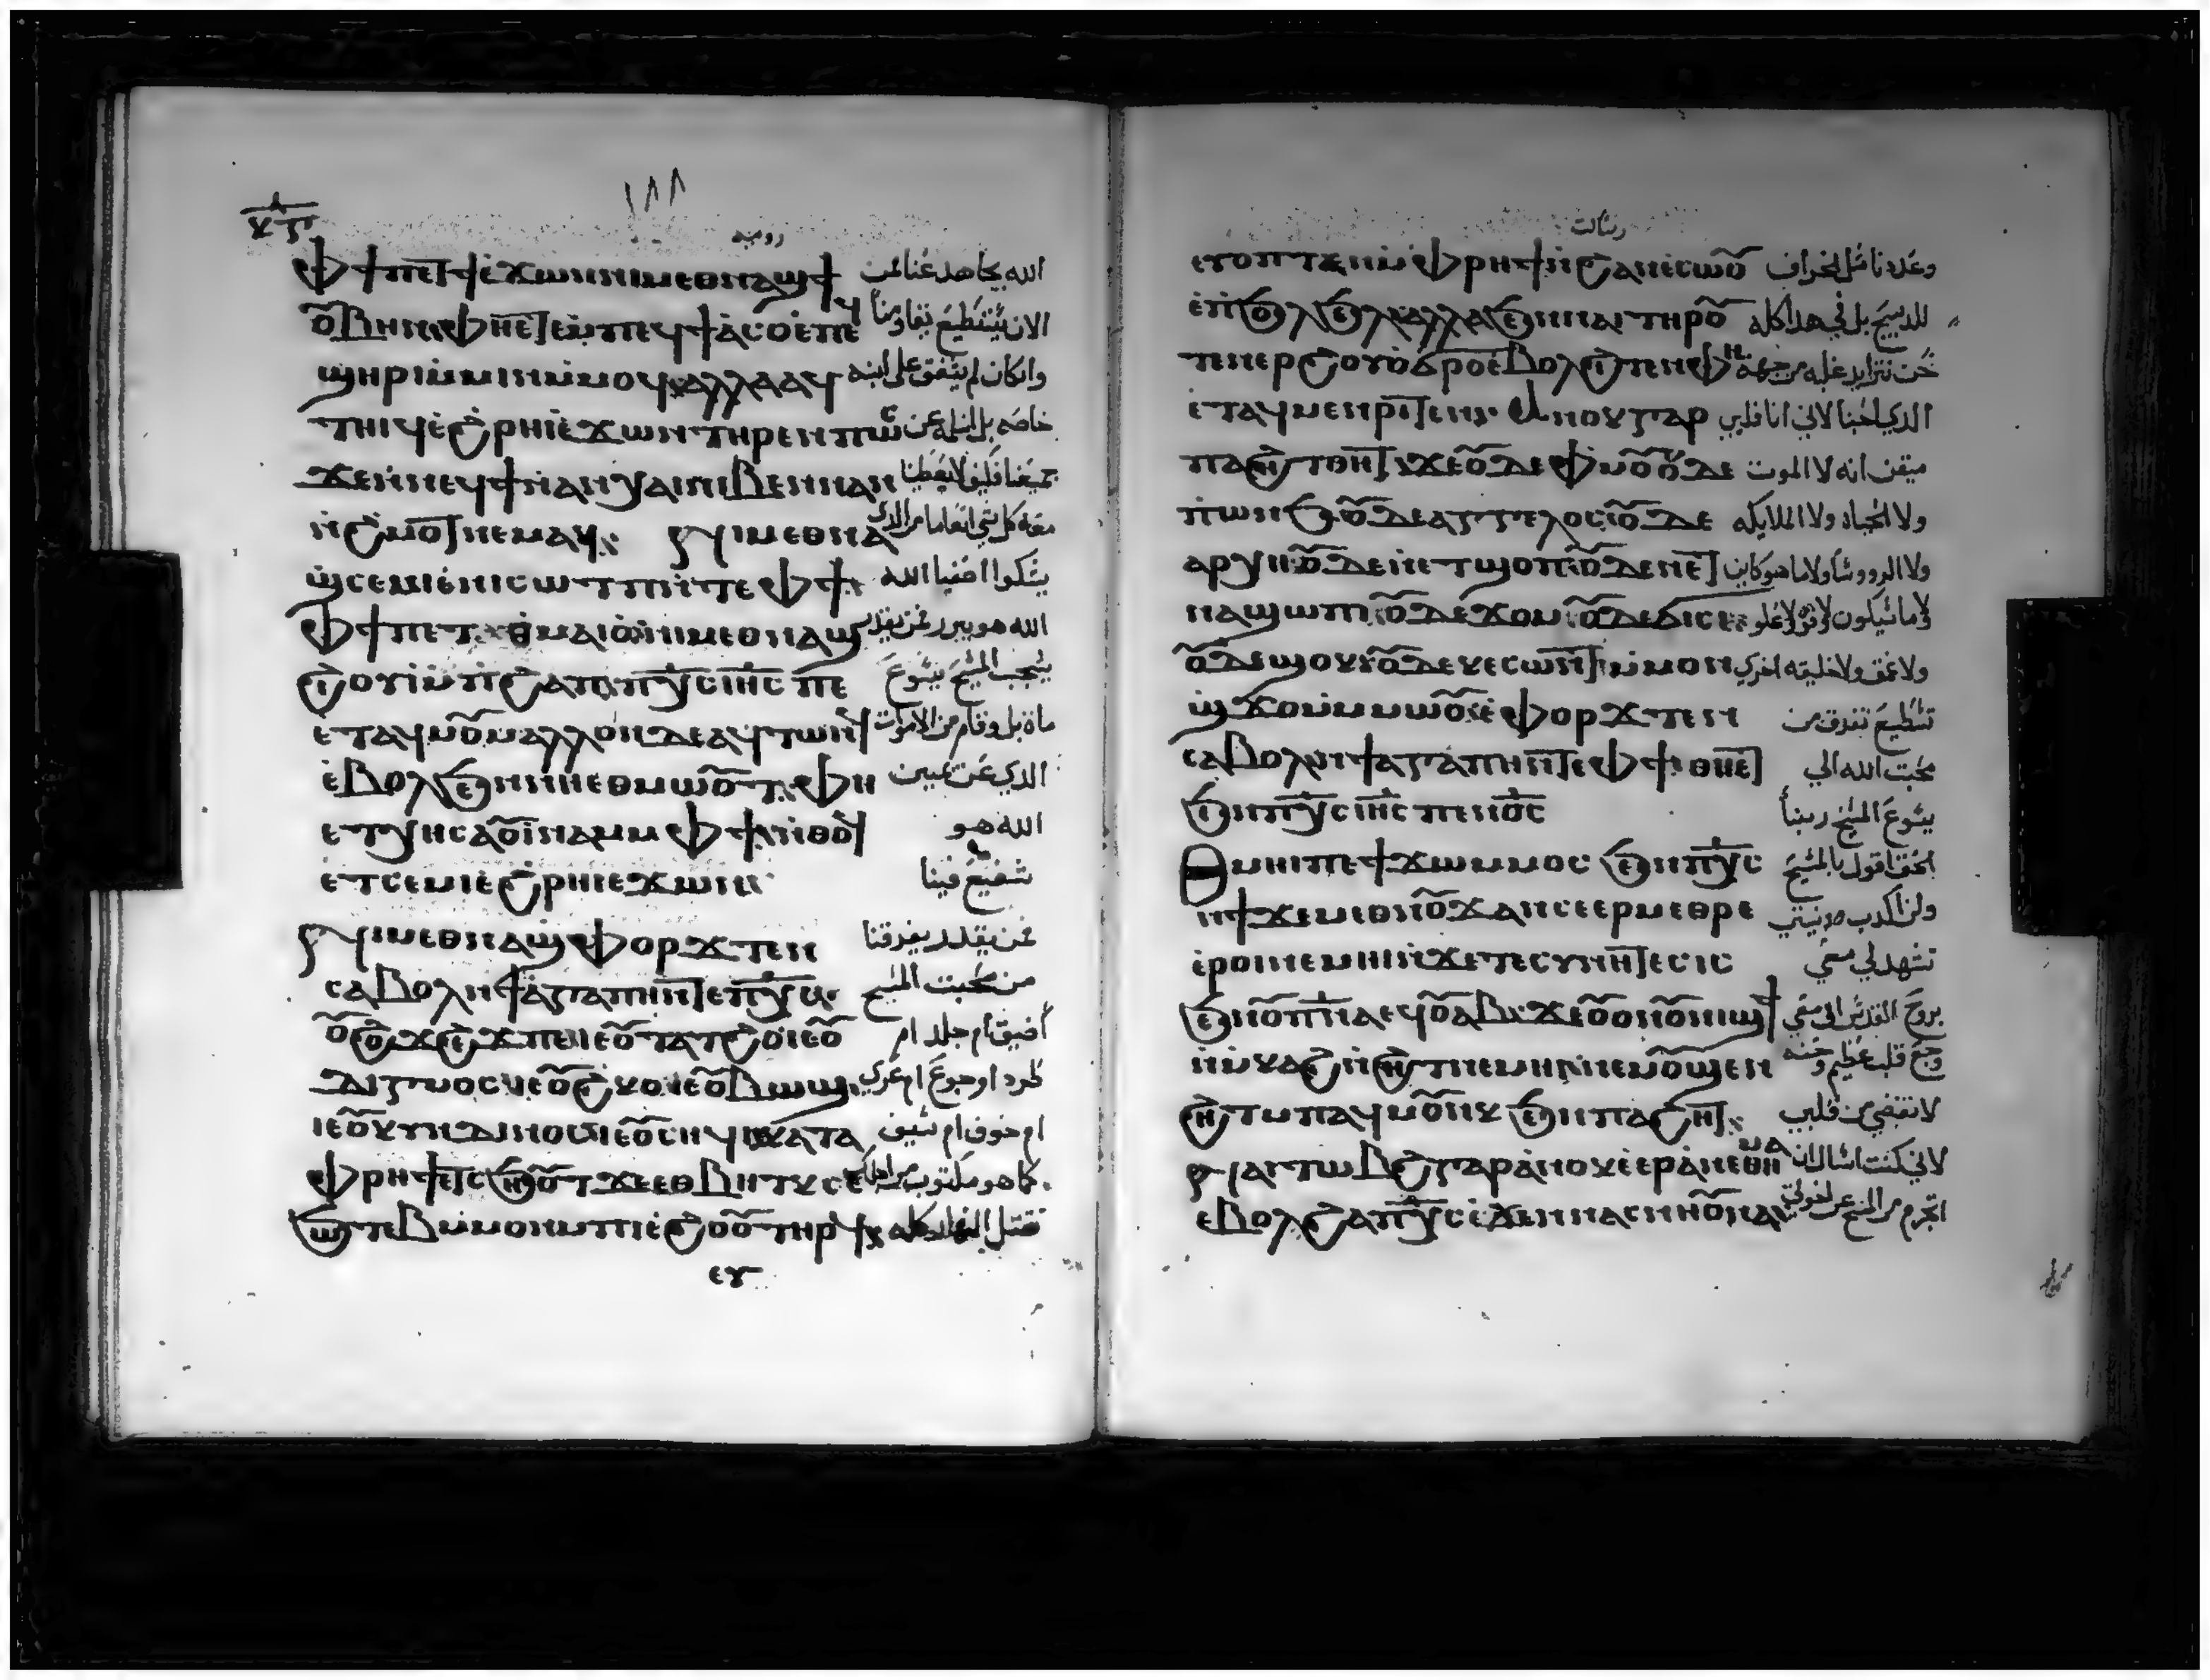 ١٨٨
روميه
ⲫϯ ⲡⲉⲧϯ ⲉϫⲱⲛ ⲛⲓⲙ ⲉⲑⲛⲁϣϯ الله يجاهد عنا لمن
ⲟⲩⲃⲏⲛ ⲫⲏ ⲉⲧⲉⲙⲡⲉϥϯⲁⲥⲟ ⲉⲡⲉϥ الان يستطيع يقاومنا
ϣⲏⲣⲓ ⲙⲙⲓⲛ ⲙⲙⲟϥ ⲁⲗⲗⲁ ⲁϥ وانكان لم يشفق على ابنه
ⲧⲏⲓϥ ⲉϩⲣⲏⲓ ⲉϫⲱⲛ ⲧⲏⲣⲉⲛ ⲡⲱⲥ خاصه بل اسلمه عن
ϫⲉ ⲛⲛⲉϥϯ ⲛⲁⲛ ⲛⲭⲁⲓ ⲛⲓⲃⲉⲛ ⲛⲁⲛ جميعنا فكيف لا يعطينا
ⲛϩⲙⲟⲧ ⲛⲉⲙⲁϥ ⲛⲓⲙ ⲉⲑⲛⲁ معه كل شي انعاما من الذي
ϣⲥⲉⲙⲓ ⲉⲛⲓⲥⲱⲧⲡ ⲛⲧⲉ ⲫϯ يشكوا اصفيا الله
ⲫϯ ⲡⲉⲧⲑⲙⲁⲓⲟ ⲛⲓⲙ ⲉⲑⲛⲁϣ الله هو يبرر من يقدر
ϩⲓⲟⲩⲓ ⲙⲡϩⲁⲡ ⲡⲭⲥ ⲓⲏⲥ ⲡⲉ يشجب المسيح يسوع
ⲉⲧⲁϥⲙⲟⲩ ⲙⲁⲗⲗⲟⲛ ⲇⲉ ⲁϥⲧⲱⲛϥ مات بل وقام من الاموات
ⲉⲃⲟⲗϧⲉⲛ ⲛⲏ ⲉⲑⲙⲱⲟⲩⲧ ⲫⲏ الذي عن يمين
ⲉⲧⲭⲏ ⲥⲁⲟⲩⲓⲛⲁⲙ ⲙⲫϯ ⲛⲑⲟϥ الله هو
ⲉⲧⲥⲉⲙⲓ ⲉϩⲣⲏⲓ ⲉϫⲱⲛ شفيع فينا
ⲛⲓⲙ ⲉⲑⲛⲁϣⲫⲟⲣϫⲧⲉⲛ من يقدر يفرقنا
ⲥⲁⲃⲟⲗ ⲛϯⲁⲅⲁⲡⲏ ⲛⲧⲉ ⲡⲭⲥ من محبت المسيح
ⲟⲩϩⲟϫϩⲉϫ ⲡⲉ ⲓⲉ ⲟⲩⲧⲁⲧϩⲟ ⲓⲉ ⲟⲩ أضيق ام جلد ام
ⲇⲓⲅⲙⲟⲥ ⲓⲉ ⲟⲩϩⲕⲟ ⲓⲉ ⲟⲩⲃⲱϣ طرد او جوع ام عري
ⲓⲉ ⲟⲩⲕⲩⲛⲇⲓⲛⲟⲥ ⲓⲉ ⲟⲩⲥⲏϥⲓ ⲕⲁⲧⲁ ام خوف ام سيف
ⲫⲣⲏϯ ⲉⲧⲥϧⲏⲟⲩⲧ ϫⲉ ⲉⲑⲃⲏⲧⲕ ⲥⲉ كما هو مكتوب من اجلك
ϧⲱⲧⲉⲃ ⲙⲙⲟⲛ ⲙⲡⲓⲉϩⲟⲟⲩ ⲧⲏⲣϥ نقتل النهار كله
ⲉⲩ
رسالت
ⲉⲧⲟⲡⲧⲉⲛ ⲙⲫⲣⲏϯ ⲛϩⲁⲛⲉⲥⲱⲟⲩ وعددنا مثل الخراف
ⲉⲡϧⲟⲗϧⲉⲗ ⲁⲗⲗⲁ ϧⲉⲛ ⲛⲁⲓ ⲧⲏⲣⲟⲩ للدبيح بل في هدا كله
ⲧⲉⲛⲉⲣϩⲟⲩⲟ ϭⲣⲟ ⲉⲃⲟⲗϩⲓⲧⲉⲛ ⲫⲏ نحن نتزايد غلبه من جهة
ⲉⲧⲁϥⲙⲉⲛⲣⲓⲧⲉⲛ ⲁⲛⲟⲕ ⲅⲁⲣ الدي احبنا لاني انا قلبي
ⲡⲁϩⲏⲧ ⲑⲏⲧ ϫⲉ ⲟⲩⲇⲉ ⲫⲙⲟⲩ ⲟⲩⲇⲉ ميقن انه لا الموت
ⲡⲱⲛϧ ⲟⲩⲇⲉ ⲁⲅⲅⲉⲗⲟⲥ ⲟⲩⲇⲉ ولا الحياه ولا الملايكه
ⲁⲣⲭⲏ ⲟⲩⲇⲉ ⲛⲉⲧϣⲟⲡ ⲟⲩⲇⲉ ⲛⲉⲧ ولا الرووسا ولا ما هو كاين
ⲛⲁϣⲱⲡⲓ ⲟⲩⲇⲉ ϫⲟⲙ ⲟⲩⲇⲉ ϭⲓⲥⲓ لا ما سيكون
ⲟⲩⲇⲉ ϣⲟⲕ ⲟⲩⲇⲉ ⲕⲉⲥⲱⲛⲧ ⲙⲙⲟⲛ ولا عمق ولا خليقه اخرى
ϣϫⲟⲙ ⲙⲙⲱⲟⲩ ⲉⲫⲟⲣϫⲧⲉⲛ تستطيع تفرق من
ⲥⲁⲃⲟⲗ ⲛϯⲁⲅⲁⲡⲏ ⲛⲧⲉ ⲫϯ ⲑⲏⲉⲧ محبت الله الي
ϧⲉⲛ ⲡⲭⲥ ⲓⲏⲥ ⲡⲉⲛⲟⲥ يسوع المسيح ربنا
ⲑⲙⲏⲓ ⲡⲉϯϫⲱ ⲙⲙⲟⲥ ϧⲉⲛ ⲡⲭⲥ الحق اقول بالمسيح
ⲛϯϫⲉⲙⲉⲑⲛⲟⲩϫ ⲁⲛ ⲥⲉⲉⲣⲙⲉⲑⲣⲉ ولن اكدب ونيتي
ⲉⲣⲟⲓ ⲛⲉⲙⲏⲓ ⲛϫⲉ ⲧⲉⲥⲩⲛⲏⲧⲉⲥⲓⲥ تشهد لي معي
ϧⲉⲛ ⲟⲩⲡⲛⲁ ⲉϥⲟⲩⲁⲃ ϫⲉ ⲟⲩⲟⲛ ⲟⲩⲛⲓϣϯ بروح القدس
ⲛⲙⲕⲁϩ ⲛϩⲏⲧ ⲛⲉⲙⲏⲓ ⲛⲉⲙ ⲟⲩϣⲉⲛ وجع قلب عظيم وحسه
ϩⲏⲧ ⲙⲡⲁϥⲙⲟⲩⲛⲕ ϧⲉⲛ ⲡⲁϩⲏⲧ لا تنقضي من قلبي
ⲛⲁⲓⲧⲱⲃϩ ⲅⲁⲣ ⲁⲛⲟⲕ ⲉⲉⲣⲁⲛⲉⲑⲉⲙⲁ لاني كنت اسال ان
ⲉⲃⲟⲗϩⲁ ⲡⲭⲥ ⲉϫⲉⲛ ⲛⲁⲥⲛⲏⲟⲩ ⲛⲁ احرم من المسيح عن اخوتي